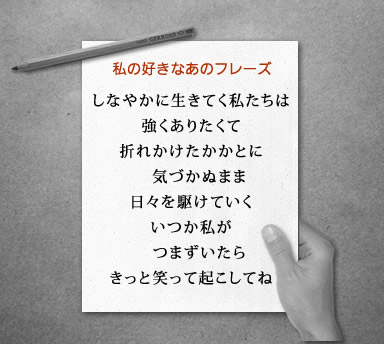 私の好きなあのフレーズ
しなやかに生きてく私たちは
強くありたくて
折れかけたかかとに
気づかぬまま
日々を駆けていく
いつか私が
つまずいたら
きっと笑って起こしてね